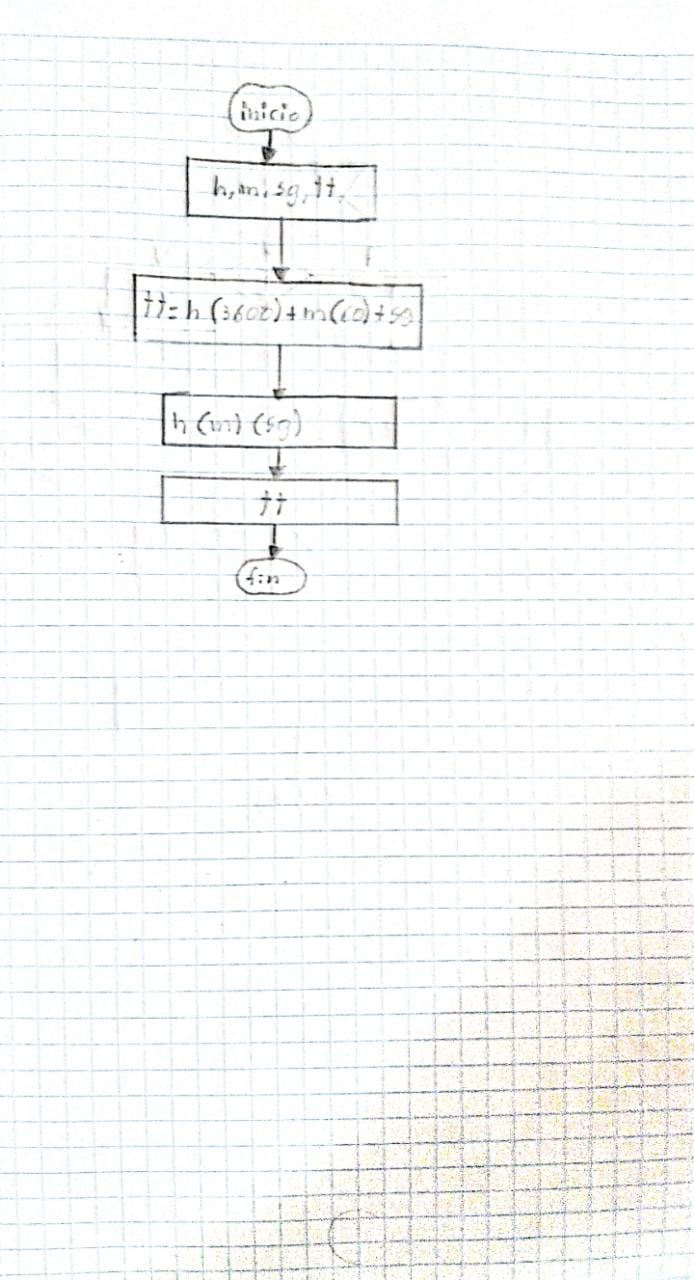 inicio
h, m, sg, tt,
tt= h (3600) + m(60) + sg
h (m) (sg)
tt
fin